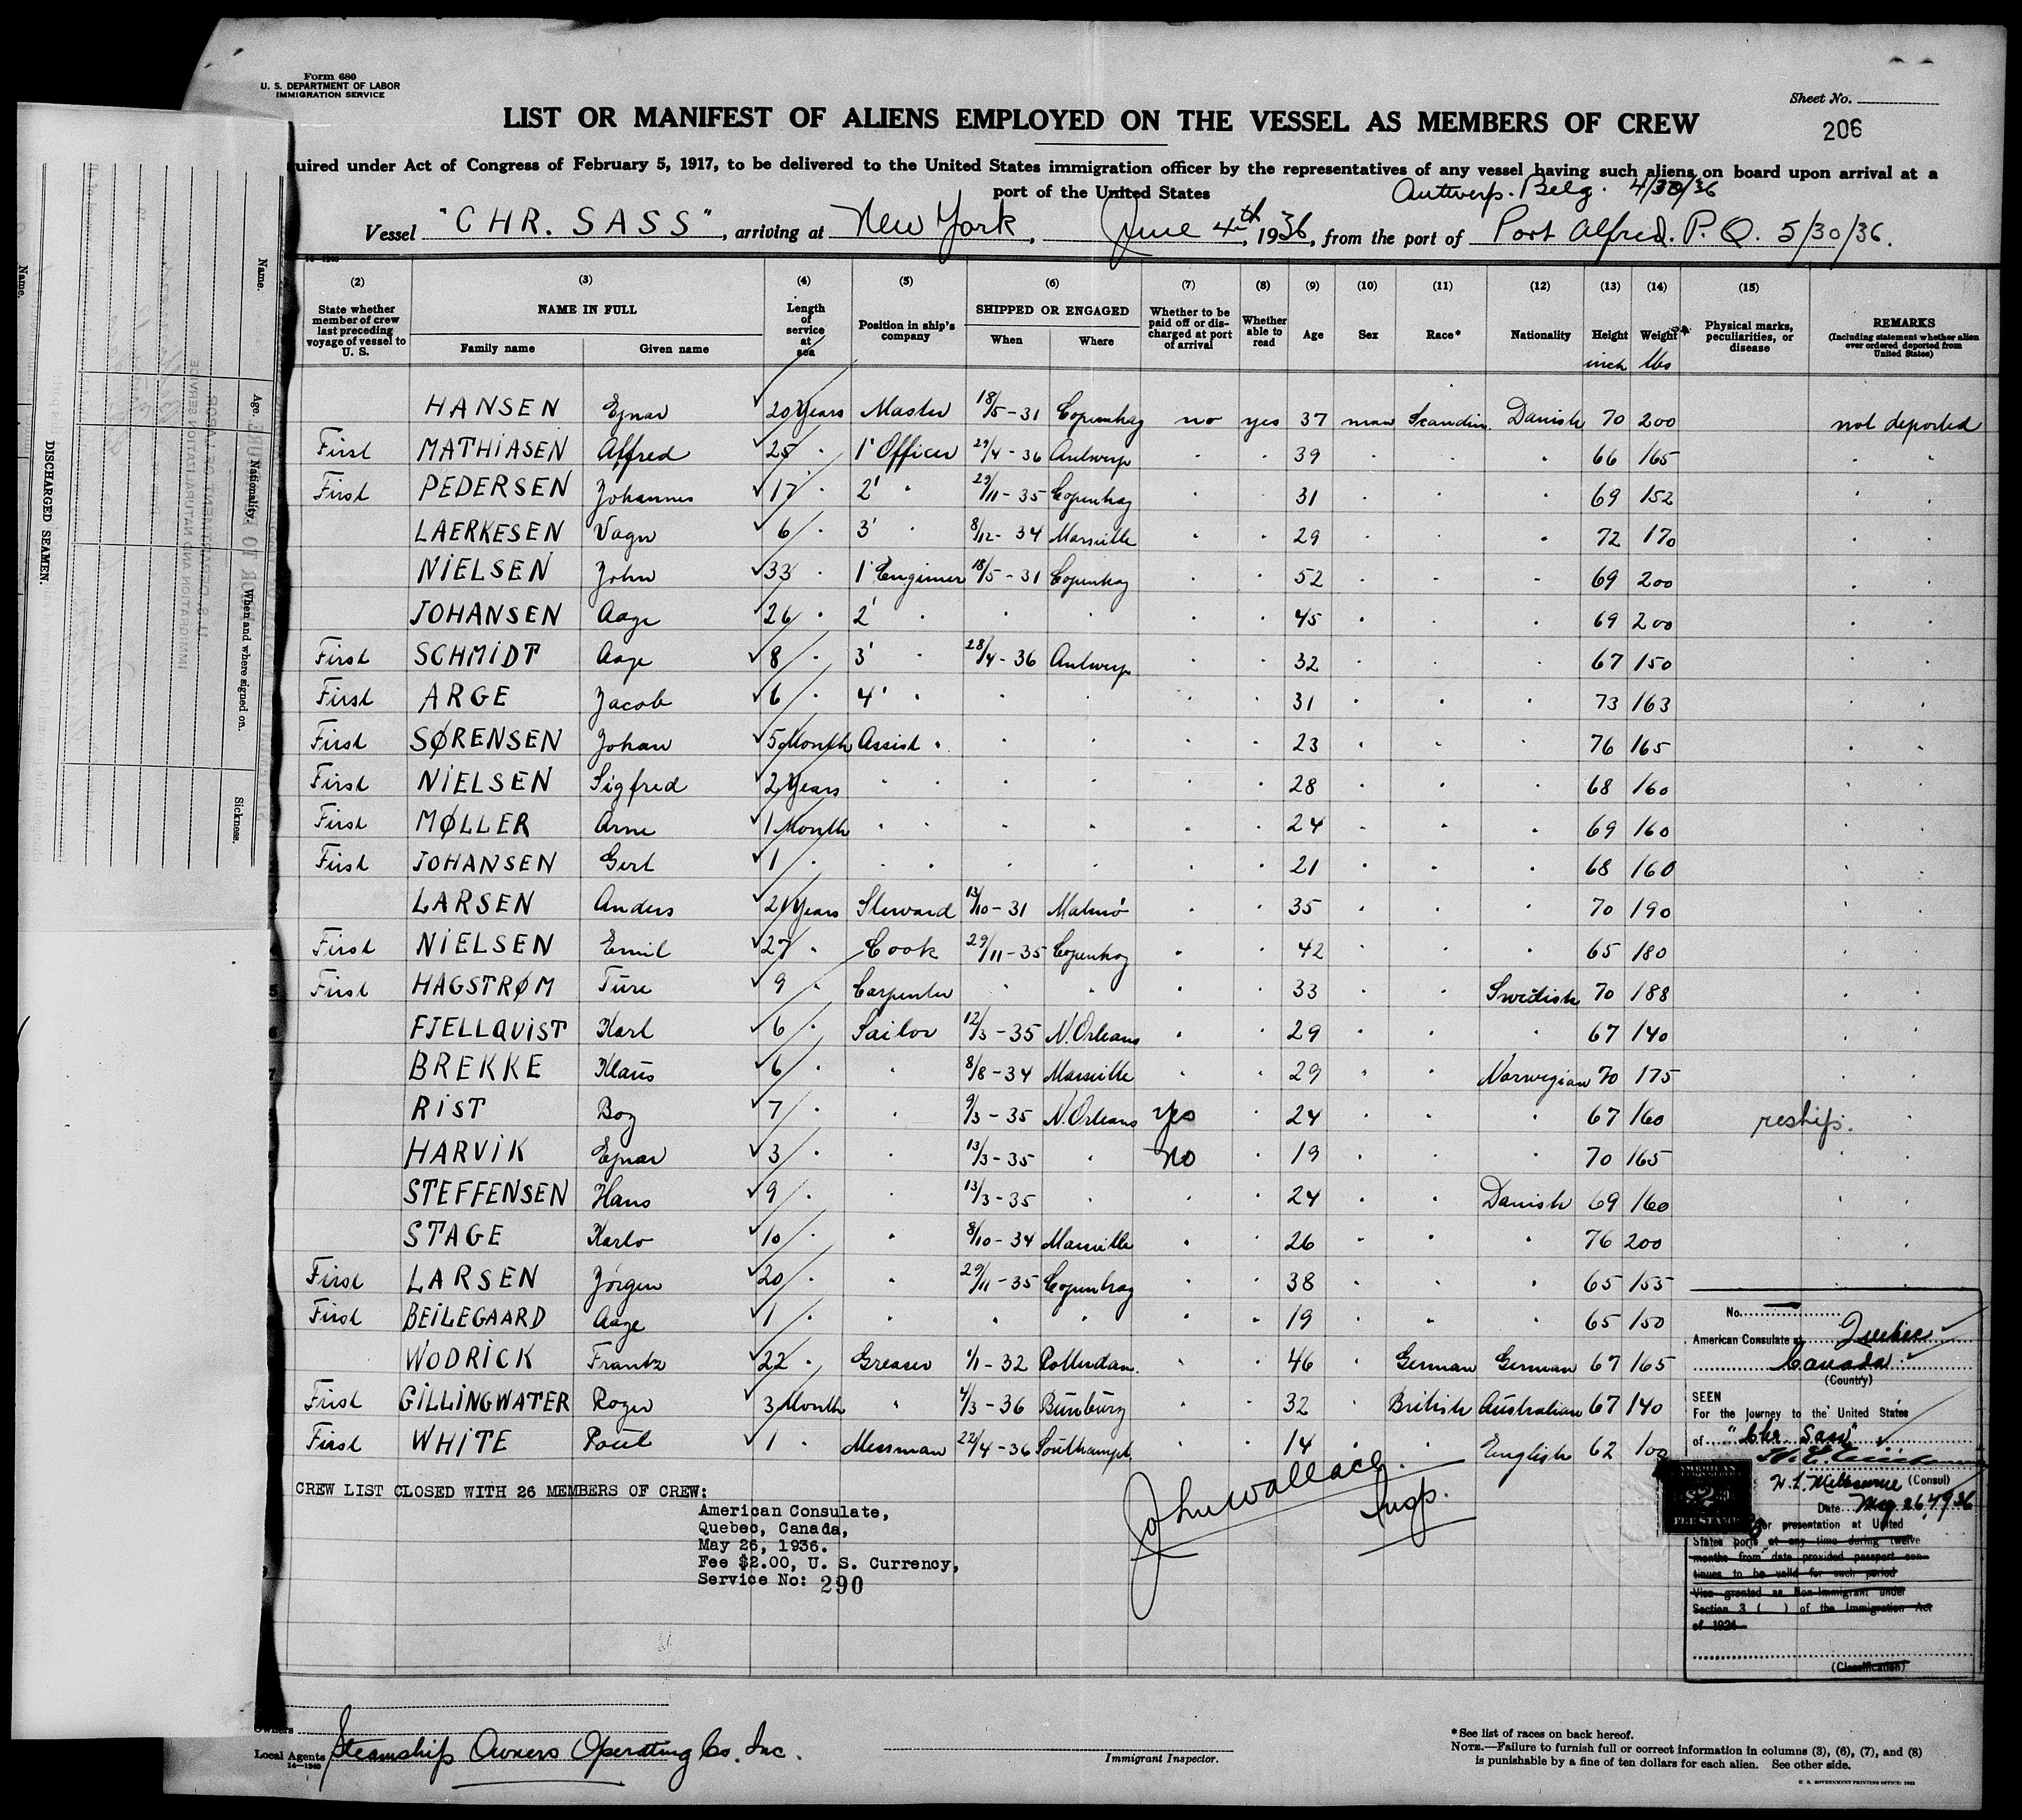 Form 680
U. S. DEPARTMENT OF LABOR
IMMIGRATION SERVICE
Sheet No.
206
LIST OR MANIFEST OF ALIENS EMPLOYED ON THE VESSEL AS MEMBERS OF CREW
uired under Act of Congress of February 5, 1917, to be delivered to the United States immigration officer by the representatives of any vessel having such aliens on board upon arrival at a
port of the United States
Antwerp. Belg. 4/30/36
Vessel "CHR. SASS", arriving at New York, June 4th, 1936, from the port of Port Alfred. P. Q. 5/30/36.
(2) (3) (4) (5) (6) (7) (8) (9) (10) (11) (12) (13) (14) (15)
State whether member of crew last preceding voyage of vessel to U. S. NAME IN FULL Family name Given name Length of service at sea Position in ship's company SHIPPED OR ENGAGED When Where Whether to be paid off or discharged at port of arrival Whether able to read Age Sex Race* Nationality Height Weight Physical marks, peculiarities, or disease REMARKS (Including statement whether alien ever ordered deported from United States)
inch lbs
HANSEN Ejnar 20 Years Master 18/5-31 Copenhag no yes 37 man Scandin. Danish 70 200 not deported
First MATHIASEN Alfred 25 1' Officer 29/4-36 Antwerp 39 66 165
First PEDERSEN Johannes 17 2' 29/11-35 Copenhag 31 69 152
LAERKESEN Vagn 6 3' 8/12-34 Marseille 29 72 170
NIELSEN John 33 1' Engineer 18/5-31 Copenhag 52 69 200
JOHANSEN Aage 26 2' 45 69 200
First SCHMIDT Aage 8 3' 28/4-36 Antwerp 32 67 150
First ARGE Jacob 6 4' 31 73 163
First SØRENSEN Johan 5 Month Assist 23 76 165
First NIELSEN Sigfred 2 Years 28 68 160
First MØLLER Arne 1 Month 24 69 160
First JOHANSEN Gert 1 21 68 160
LARSEN Anders 21 Years Steward 13/10-31 Malmö 35 70 190
First NIELSEN Emil 27 Cook 29/11-35 Copenhag 42 65 180
First HAGSTRØM Ture 9 Carpenter 33 Swedish 70 188
FJELLQVIST Karl 6 Sailor 12/3-35 N. Orleans 29 67 140
BREKKE Klaus 6 8/8-34 Marseille 29 Norwegian 70 175
RIST Boy 7 9/3-35 N. Orleans yes 24 67 160 reship.
HARVIK Ejnar 3 13/3-35 no 19 70 165
STEFFENSEN Hans 9 13/3-35 24 Danish 69 160
STAGE Karlo 10 8/10-34 Marseille 26 76 200
First LARSEN Jörgen 20 29/11-35 Copenhag 38 65 155
First BEILEGAARD Aage 1 19 65 150
WODRICK Frantz 22 Greaser 1/1-32 Rotterdam. 46 German German 67 165
First GILLINGWATER Roger 3 Month 4/3-36 Bunbury 32 British Australian 67 140
First WHITE Poul 1 Messman 22/4-36 Southampt. 14 English 62 100
CREW LIST CLOSED WITH 26 MEMBERS OF CREW:
American Consulate,
Quebec, Canada,
May 26, 1936.
Fee $2.00, U. S. Currency,
Service No: 290
John Wallace
Insp.
No.
American Consulate at Quebec
Canada
(Country)
SEEN
For the journey to the United States
of "Chr. Sass"
(Consul)
Date May 26, 1936
For presentation at United
States ports at any time during twelve
months from date provided passport con-
tinues to be valid for such period
Visa granted as Non-Immigrant under
Section 3 ( ) of the Immigration Act
of 1924
(Classification)
AMERICAN
FEE STAMP
Owners
Local Agents Steamship Owners Operating Co. Inc.
14-1240
Immigrant Inspector.
*See list of races on back hereof.
NOTE.—Failure to furnish full or correct information in columns (3), (6), (7), and (8)
is punishable by a fine of ten dollars for each alien. See other side.
U. S. GOVERNMENT PRINTING OFFICE: 1932
DISCHARGED SEAMEN.
Name. Age. Nationality. When and where signed on. Sickness.
Name.
U. S. DEPARTMENT OF LABOR
IMMIGRATION AND NATURALIZATION SERVICE